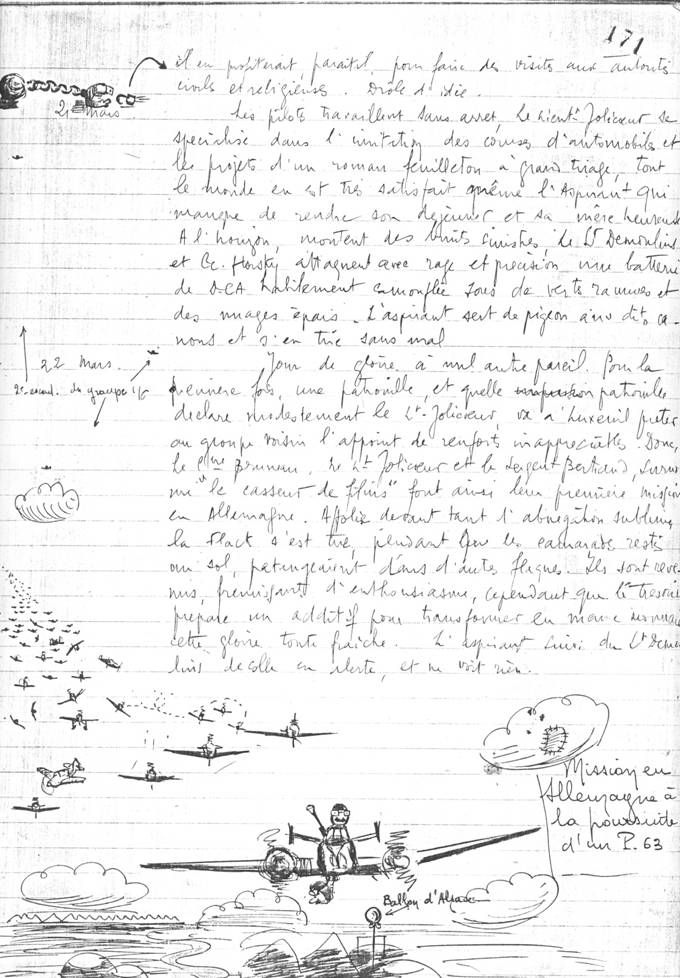 171
il en profiterait paraît il pour faire des visites aux autorités
civiles et religieuses. Drôle d'idée.
21 Mars
Les pilotes travaillent sans arret. Le Lieut Jolicoeur se
spécialise dans l'imitation des courses d'automobiles et
les projets d'un roman feuilleton à grand tirage, tout
le monde en est très satisfait même l'Aspirant qui
manque de rendre son déjeuner et sa mère heureuse
A l'horizon, montent des bruits sinistres. Le Lt Demoulins
et attaquent avec rage et précision une batterie
de DCA habilement camouflée sous de verts rameaux et
des nuages épais. L'aspirant sert de pigeon aux dits ca-
nons et s'en tire sans mal
22 Mars.
Jour de gloire à nul autre pareil. Pour la
2e escad. du groupe
première fois, une patrouille, et quelle patrouille
déclare modestement le Lt-Jolicoeur, va à Luxeuil prêter
au groupe voisin l'appoint de renforts inappréciables. Donc,
le Bruneau, le Lt Jolicoeur et le sergent Bertrand, surnom
mé "le casseur de" font ainsi leur première mission
en Allemagne. Affolée devant tant d'abnégation sublime
la Flack s'est tue, pendant que les camarades restés
au sol, pataugeaient dans d'autres flaques. Ils sont reve-
nus, frémissants d'enthousiasme, cependant que le
prépare un additif pour transformer en
cette gloire toute fraîche. L'aspirant suivi du Lt Demou
lins décolle en alerte, et ne voit rien.
Mission en
Allemagne à
la poursuite
d'un P.63
Ballon d'Alsace